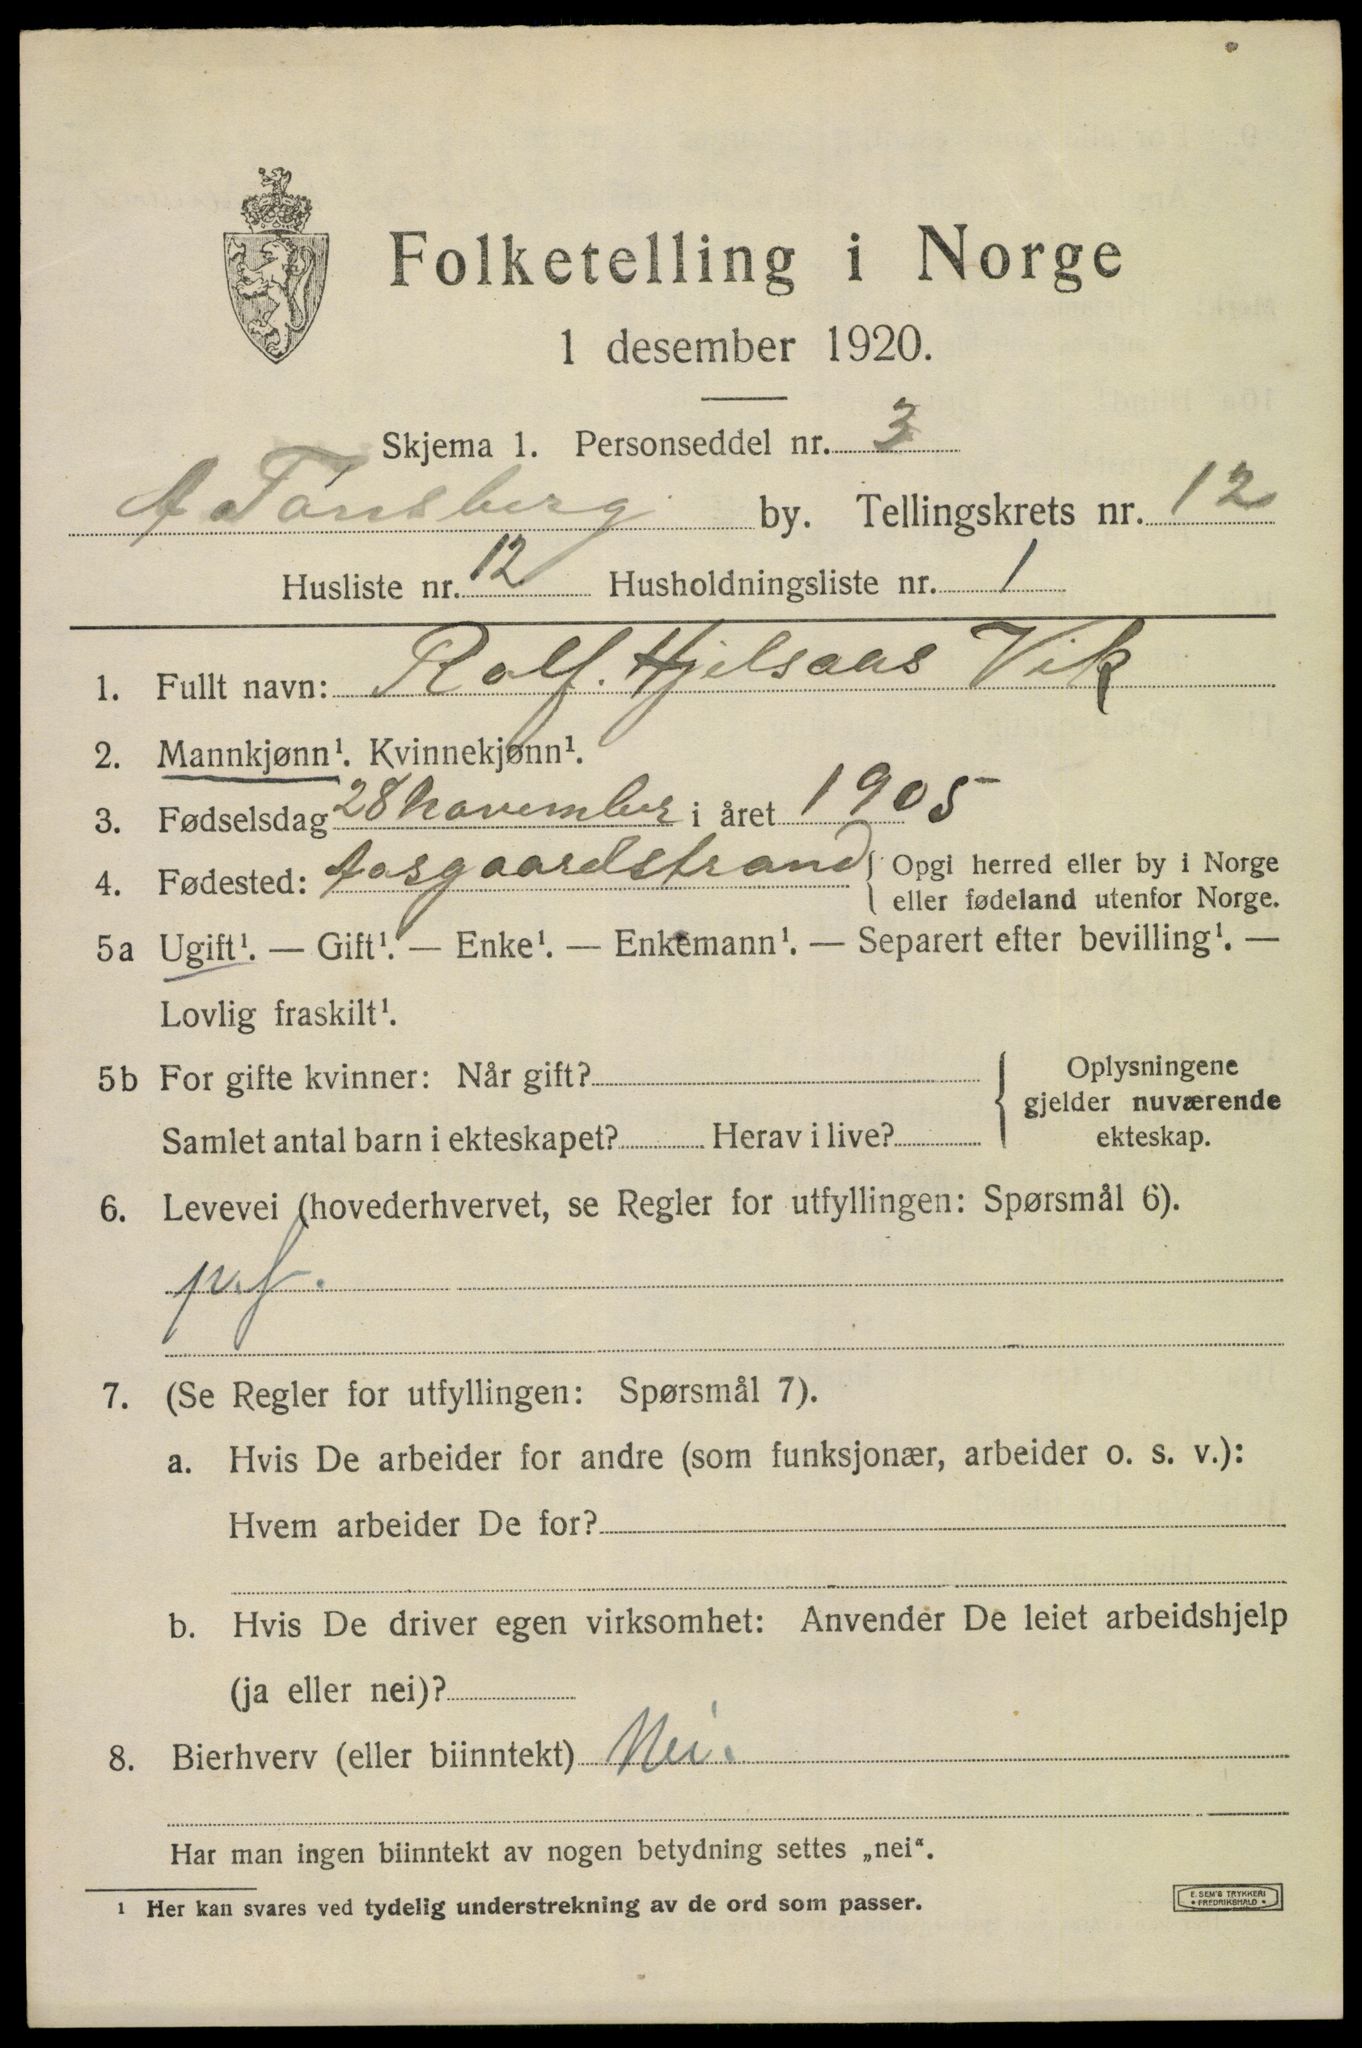 Folketelling i Norge
1 desember 1920.
Skjema 1. Personseddel nr. 3
Tønsberg by. Tellingskrets nr. 12
Husliste nr. 12 Husholdningsliste nr. 1
1. Fullt navn: Rolf. Hjelsaas Vik
2. Mannkjønn¹. Kvinnekjønn¹.
3. Fødselsdag 28 November i året 1905
4. Fødested: Aasgaardstrand { Opgi herred eller by i Norge
eller fødeland utenfor Norge.
5a Ugift¹. — Gift¹. — Enke¹. — Enkemann¹. — Separert efter bevilling¹. —
Lovlig fraskilt¹.
5b For gifte kvinner: Når gift?
Samlet antal barn i ekteskapet? Herav i live?
{ Oplysningene
gjelder nuværende
ekteskap.
6. Levevei (hovederhvervet, se Regler for utfyllingen: Spørsmål 6).
7. (Se Regler for utfyllingen: Spørsmål 7).
a. Hvis De arbeider for andre (som funksjonær, arbeider o. s. v.):
Hvem arbeider De for?
b. Hvis De driver egen virksomhet: Anvender De leiet arbeidshjelp
(ja eller nei)?
8. Bierhverv (eller biinntekt) Nei.
Har man ingen biinntekt av nogen betydning settes „nei“.
¹ Her kan svares ved tydelig understrekning av de ord som passer.
E. SEM'S TRYKKERI
• FREDRIKSHALD •